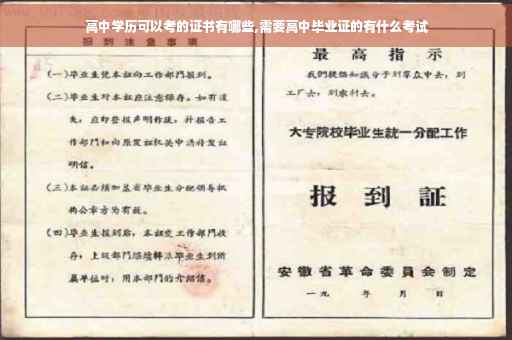 高中学历可以考的证书有哪些,需要高中毕业证的有什么考试
报到注意事项
(一)毕业生凭本证向工作部门报到。
(二)毕业生对本证应注意保存。如有遗
失,应即登报声明作废,并报告工
作部门和向原发证机关申请补发证
明信。
(三)本证必须加盖省毕业生分配领导机
构公章方为有效。
(四)毕业生报到后,本证交工作部门收
存;上级部门
毕业生到所
属单位时,用本部门的介绍信。
最高指示
我们提倡知识分子到群众中去,到
工厂去,到农村去。
大专院校毕业生統一分配工作
报到証
安徽省革命委員会制定
一九 年 月 日